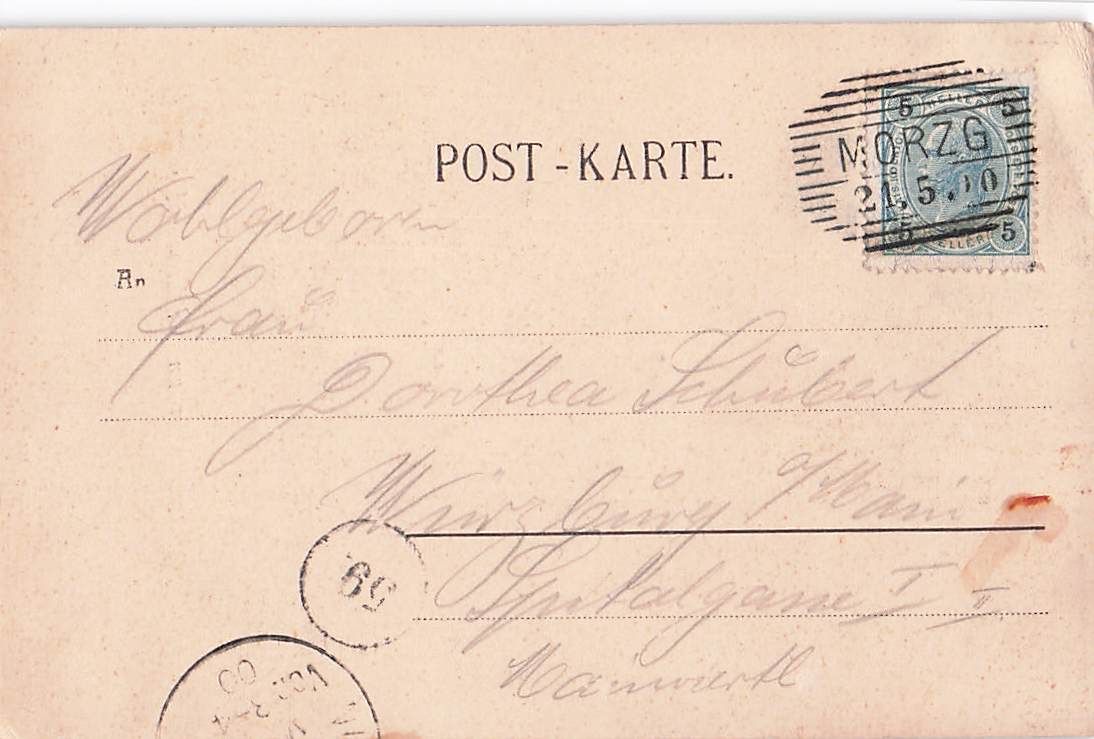 POST-KARTE.
MORZG
21.5.00
5 HELLER 5
5 HELLER 5
Wohlgeboren
An
Frau
Dorothea Schubert
Würzburg a/Main
Spitalgasse I II
Mainviertl
59
00
Vor
3-4